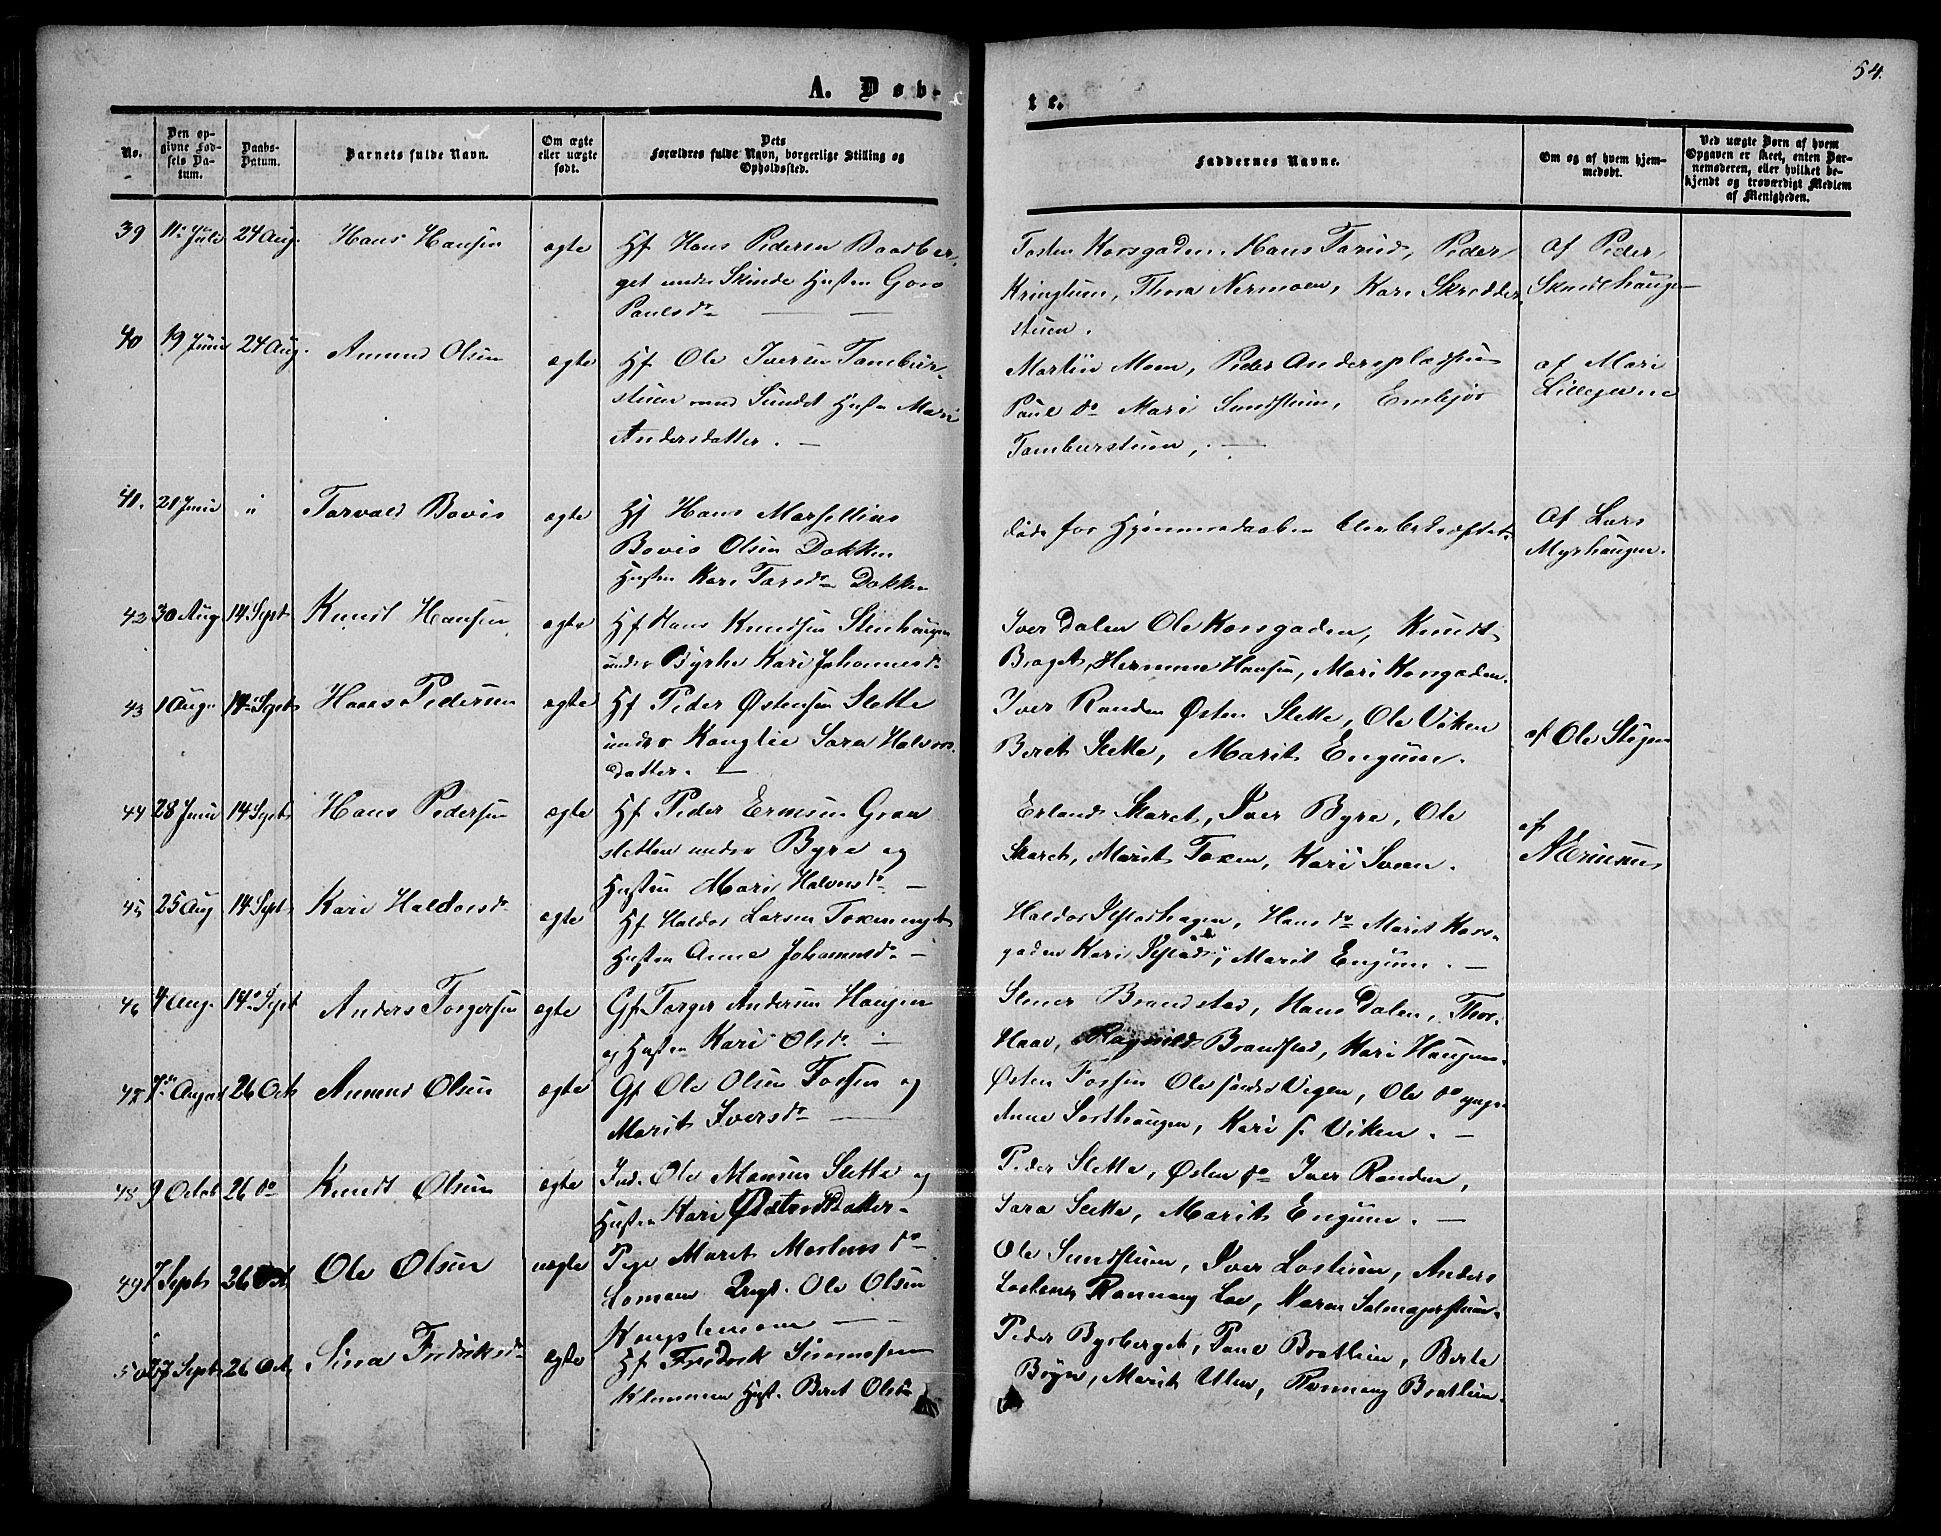 54.
A. Døb-
te.
No.
Den op-
givne Fød-
sels Da-
tum.
Daabs-
Datum.
Barnets fulde Navn.
Om ægte
eller uægte
født.
Dets
Forældres fulde Navn, borgerlige Stilling og
Opholdssted.
Faddernes Navne.
Om og af hvem hjem-
medøbt.
Ved uægte Børn af hvem
Opgaven er skeet, enten Bar-
nemoderen, eller hvilket be-
kjendt og troværdigt Medlem
af Menigheden.
39 11te Juli 24 Aug. Hans Hansen ægte
Hf Hans Pedersen Baadber-
get under Skinde Husten Goro
Paulsdr
Tosten Korsgaden, Hans Tarud, Peder
Kringlum, Thora Nermoen, Kari Skredder
stuen.
Af Peder
40 19 Juni 24 Aug. Amund Olsen ægte
Hf Ole Iversen Tambur-
stuen Sundt Husten Mari
Andersdatter.
Martin Moen, Peder Andersplads
Paul do Mari Sundstuen, Embjør
Tamburstuen,
af Mari
41. 21 Juni " Torvald Bovis ægte
Hf Hans Marsellius
Bovis Olsen Dokken
Husten Kari Torsdr Dokken
døde før Hjemmedaaben blev bekræftet
Af Lars
Myrhaugen.
42 30 Aug 14 Sept Knudt Hansen ægte
Hf Hans Knudsen Stenhaugen
under Byrhe Kari Johannesdr
Iver Dalen Ole Korsgaden, Knudt
Braget, Hermine Hansen, Mari Korsgaden.
43 1 Aug. 14 Sept Hans Pedersen ægte
Hf Peder Østensen Slette
under Konglie Sara Halvors
datter.
Iver Randen Østen Slette, Ole Viken
Beret Slette, Marit Engum.
af Ole Stigen
44 28 Juni 14 Sept Hans Pedersen ægte
Hf Peder Ernsen Gran
sletten under Byre og
Husten Mari Halvorsdr
Erland Skaret, Iver Byre, Ole
Skaret, Marit Toxen, Kari Sveen.
af
45 25 Aug 14 Sept Kari Haldorsdr ægte
Hf Haldor Larsen
Husten Anne Johannesdr
Haldor, Hans do Marit Kors-
gaden Kari, Marit Engum.
46 4 Aug. 14de Sept Anders Torgersen ægte
Gf Torger Andersen Haugen
og Husten Kari Olsdr
Stener Brandstad, Hans Dalen, Thor
Haav, Ragnild Brandstad, Kari Haugen
47 7de August 26 Oct Amund Olsen ægte
Gf Ole Olsen Fossen og
Marit Iversdr
Østen Fossen Ole Vigen, Ole do yngre
Anne Sorthaugen, Kari Viken.
48 9 Octob 26 do Knudt Olsen ægte
Ind. Ole Monsen Slette og
Husten Kari Østensdatter
Peder Slette, Østen do Iver Randen,
Sara Slette, Marit Engum.
49 7 Sept 26 Oct. Ole Olsen uægte
Pige Marit Mortensdr
Lomoen Ungk. Ole Olsen
Ole Sundstuen, Iver Lostuen, Anders
Lostuen Ronnaug Loe, Maren
50 27 Sept 26 Oct. Sina Fredriksdr ægte
Hf Fredrik Simensen
Klommen Hust. Beret Olsdr
Peder Bysberget, Paul Bratlien, Berte
Bøyn, Marit Ulen, Ronnaug Bratlien.